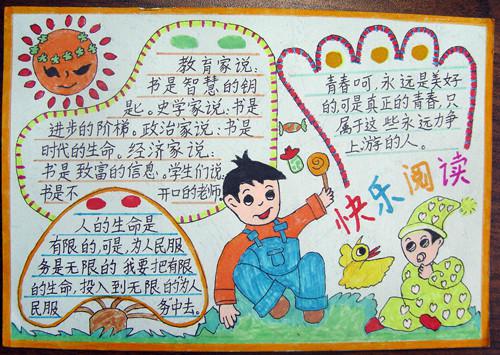 教育家说:
书是智慧的钥
匙。史学家说:书是
进步的阶梯。政治家说:书是
时代的生命。经济家说:
书是致富的信息。学生们说
书是不开口的老师
青春呵,永远是美好
的,可是真正的青春,只
属于这些永远力争
上游的人。
快乐阅读
人的生命是
有限的,可是,为人民服
务是无限的 我要把有限
的生命,投入到无限的为人
民服务中去。